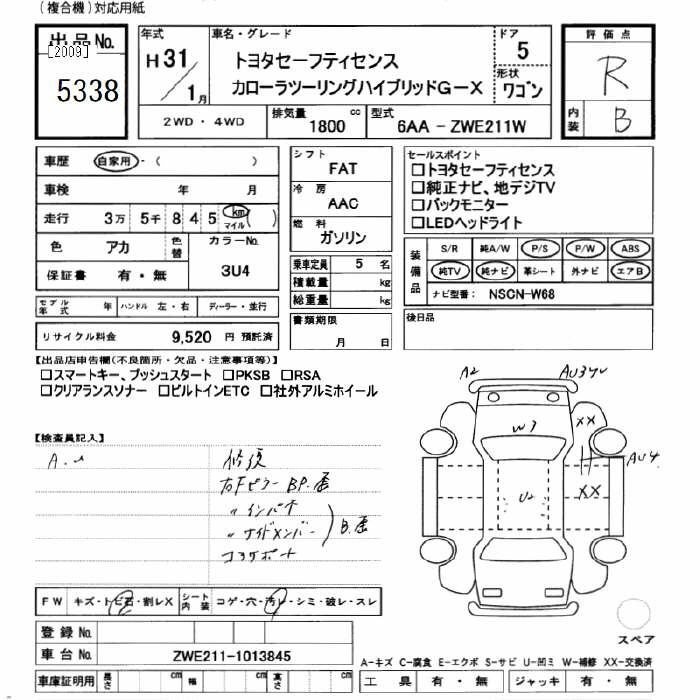 (複合機)対応用紙
出品No.
[2009]
5338
年式
H 31
/ 1 月
車名・グレード
トヨタセーフティセンス
カローラツーリングハイブリッドG-X
ドア
5
形状
ワゴン
評価点
R
内装
B
2WD・4WD
排気量
1800 cc
型式
6AA - ZWE211W
車歴 自家用 - ( )
車検 年 月
走行 3万 5千 8 4 5 km マイル ( )
色 アカ 色替 カラーNo. 3U4
保証書 有・無
モデル年式 ハンドル 左・右 ディーラー・並行
リサイクル料金 9,520 円 預託済
シフト
FAT
冷房
AAC
燃料
ガソリン
乗車定員 5 名
積載量 kg
総重量 kg
書類期限
月 日
セールスポイント
□トヨタセーフティセンス
□純正ナビ、地デジTV
□バックモニター
□LEDヘッドライト
装備品
S/R 純A/W P/S P/W ABS
純TV 純ナビ 革シート 外ナビ エアB
ナビ型番: NSCN-W68
後日品
【出品店申告欄(不良箇所・欠品・注意事項等)】
□スマートキー、プッシュスタート □PKSB □RSA
□クリアランスソナー □ビルトインETC □社外アルミホイール
【検査員記入】
修復
右Fピラー BP.歪
〃 インパネ
〃 サイドメンバー
B.歪
コアサポート
A2
W3
U2
XX
XX
AU4
FW キズ・トビ石・割レX シート内装 コゲ・穴・汚レ・シミ・破レ・スレ
登録No.
車台No. ZWE211-1013845
車庫証明用 長さ cm 幅 cm 高さ cm
スペア
A-キズ C-腐食 E-エクボ S-サビ U-凹ミ W-補修 XX-交換済
工具 有・無 ジャッキ 有・無